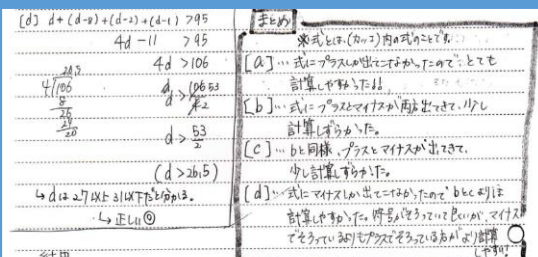 [d] d+(d-8)+(d-2)+(d-1) >95
4d-11 >95
4d >106
26,5
4√106
8
26
24
20
d > 106 53
4 2
d > 53/2
(d > 26,5)
↳ dは27以上31以下だと分かる。
↳ 正しい◎
まとめ
※式とは、(カッコ)内の式のことです。
[a]…式にプラスしか出てこなかったので、とても
計算しやすかった!!
[b]…式にプラスとマイナスが両方出てきて、少し
計算しずらかった。
[c]…bと同様、プラスとマイナスが出てきて、
少し計算しずらかった。
[d]…式にマイナスしか出てこなかったのでbとcよりは
計算しやすかった。符号がそろっていて良いが、マイナス
でそろっているよりもプラスでそろっている方がより計算
しやすい!